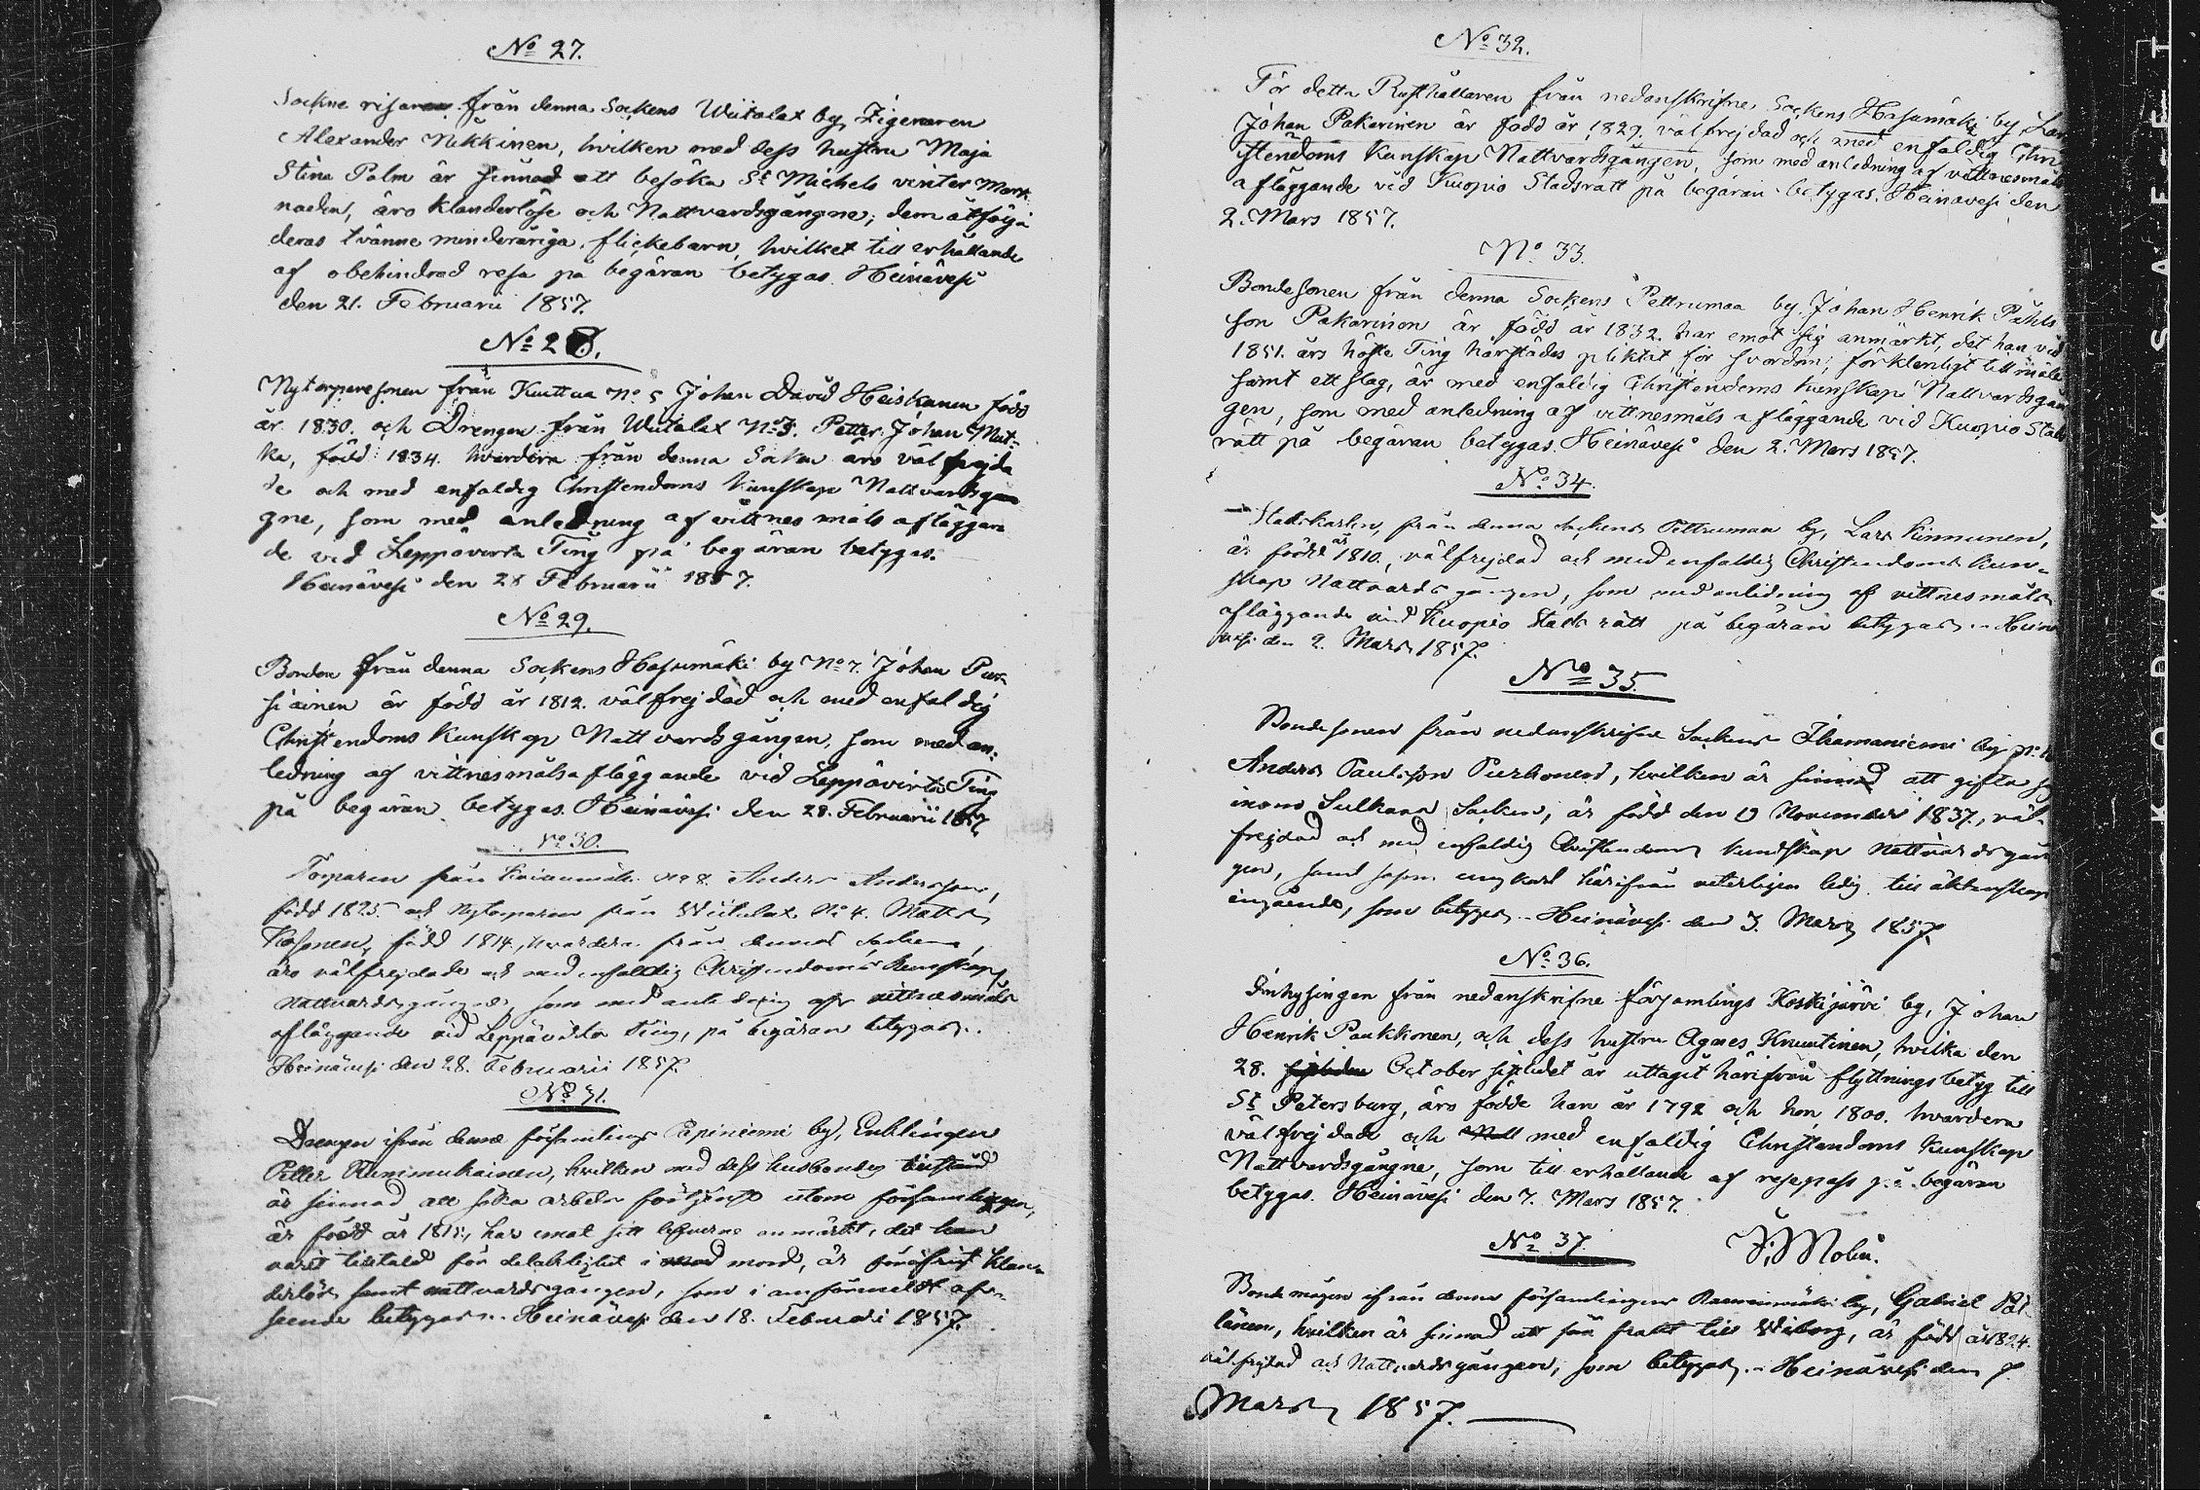 No 27.
Sockne risaren från denna Sockens Wiitalax by, Zigenaren
Alexander Nikkinen, hvilken med dess hustru Maja
Stina Palm är sinnad att besöka St Michels vinter Mark
naden, äro klanderlöse och Nattvardsgångne; dem åtfölja
deras tvänne minderåriga flickebarn, hvilket till erhållande
af obehindrad resa på begäran betygas. Heinävesi
den 21. Februarii 1857.
No 28.
Nytorparesonen från Kuttua No 5 Johan David Heiskanen född
år 1830. och Drengen från Wiitalax No 3. Petter Johan Mut-
ka, född 1834. hvardera från denna Socken äro välfrejda
de och med enfaldig Christendoms kunskap Nattvardsgån
gne, som med anledning af vittnesmåls afläggan
de vid Leppävirta Ting på begäran betygas.
Heinävesi den 28 Februarii 1857.
No 29.
Bonden från denna Sockens Hasumäki by No 7. Johan Pur-
siainen är född år 1812. välfrejdad och med enfaldig
Christendoms Kunskap Nattvardsgången, som med an-
ledning af vittnesmåls afläggande vid Leppävirta Ting
på begäran betygas. Heinävesi den 28. Februarii 1857.
No 30.
Torparen från No 8. Anders Andersson,
född 1825. och Nytorparen från Wiitalax No 4. Matts
Kosonen, född 1814, hvardera från denna Socken,
äro välfrejdade och med enfaldig Christendoms Kunskap
Nattvardsgångne, som med anledning af vittnesmåls
afläggande vid Leppävirta Ting, på begäran betygas.
Heinävesi den 28. Februarii 1857.
No 31.
Drengen ifrån denna församlings Papiniemi by, Enklingen
Petter Rummukainen, hvilken med dess husbondes tillstånd
är sinnad att söka arbets förtjenst utom församlingen,
är född år 1815, har emot sitt lefverne anmärkt, det han
varit tilltald för delaktighet i mord, är föröfrigt klan-
derlös samt nattvardsgången, som i anförmäldt af-
seende betygas. Heinävesi den 18. Februari 1857.
No 32.
För detta Rusthållaren från nedanskrifne Sockens Hasumäki by, Lars
Johan Pakarinen är född år 1829. välfrejdad och med enfaldig Chri
stendoms kunskap Nattvardsgången, som med anledning af vittnesmåls
afläggande vid Kuopio Stadsrätt på begäran betygas. Heinävesi den
2. Mars 1857.
No 33.
Bondesonen från denna Sockens Pettrumaa by Johan Henrik Påhls
son Pakarinen är född år 1832. har emot sig anmärkt, det han vid
1851. års höste Ting härstädes pliktat för svordom, förklenligt tillmäle
samt ett slag, är med enfaldig Christendoms kunskap Nattvardsgån
gen, som med anledning af vittnesmåls afläggande vid Kuopio Stads
rätt på begäran betygas. Heinävesi den 2. Mars 1857.
No 34.
Statskarlen, från denna Sockens Pettrumaa by, Lars Kinnunen,
är född år 1810., välfrejdad och med enfaldig Christendoms kun-
skap Nattvardsgången, som med anledning af vittnesmåls
afläggande vid Kuopio Stads rätt på begäran betygas. Heinä
vesi den 2. Mars 1857.
No 35.
Bondesonen från nedanskrifne Sockens Ihamaniemi by No
Anders Paulsson Purhonen, hvilken är sinnad att gifta sig
inom Sulkava Socken, är född den 19 November 1837., väl-
frejdad och med enfaldig Christendoms kundskap nattvardsgån
gen, samt såsom ungkarl härifrån veterligen ledig till äktenskaps
ingående, som betygas. Heinävesi den 3. Mars 1857.
No 36.
Inhysingen från nedanskrifne församlings Koskijärvi by, Johan
Henrik Paukkonen, och dess hustru Agnes Knuutinen, hvilka den
28. October sistlidet år uttagit härifrån flyttningsbetyg till
St Petersburg, äro födde han år 1792 och hon 1800. hvardera
välfrejdade och med enfaldig Christendoms Kunskap
Nattvardsgångne, som till erhållande af resepass på begäran
betygas. Heinävesi den 7. Mars 1857.
J. Molin.
No 37.
Bonde mågen ifrån denna församlingens by, Gabriel Pöl-
länen, hvilken är sinnad att föra frakt till Wiborg, är född år 1824.
välfrejdad och Nattvardsgången, som betygas. Heinävesi den 7.
Mars 1857.
KODAK SAFETY